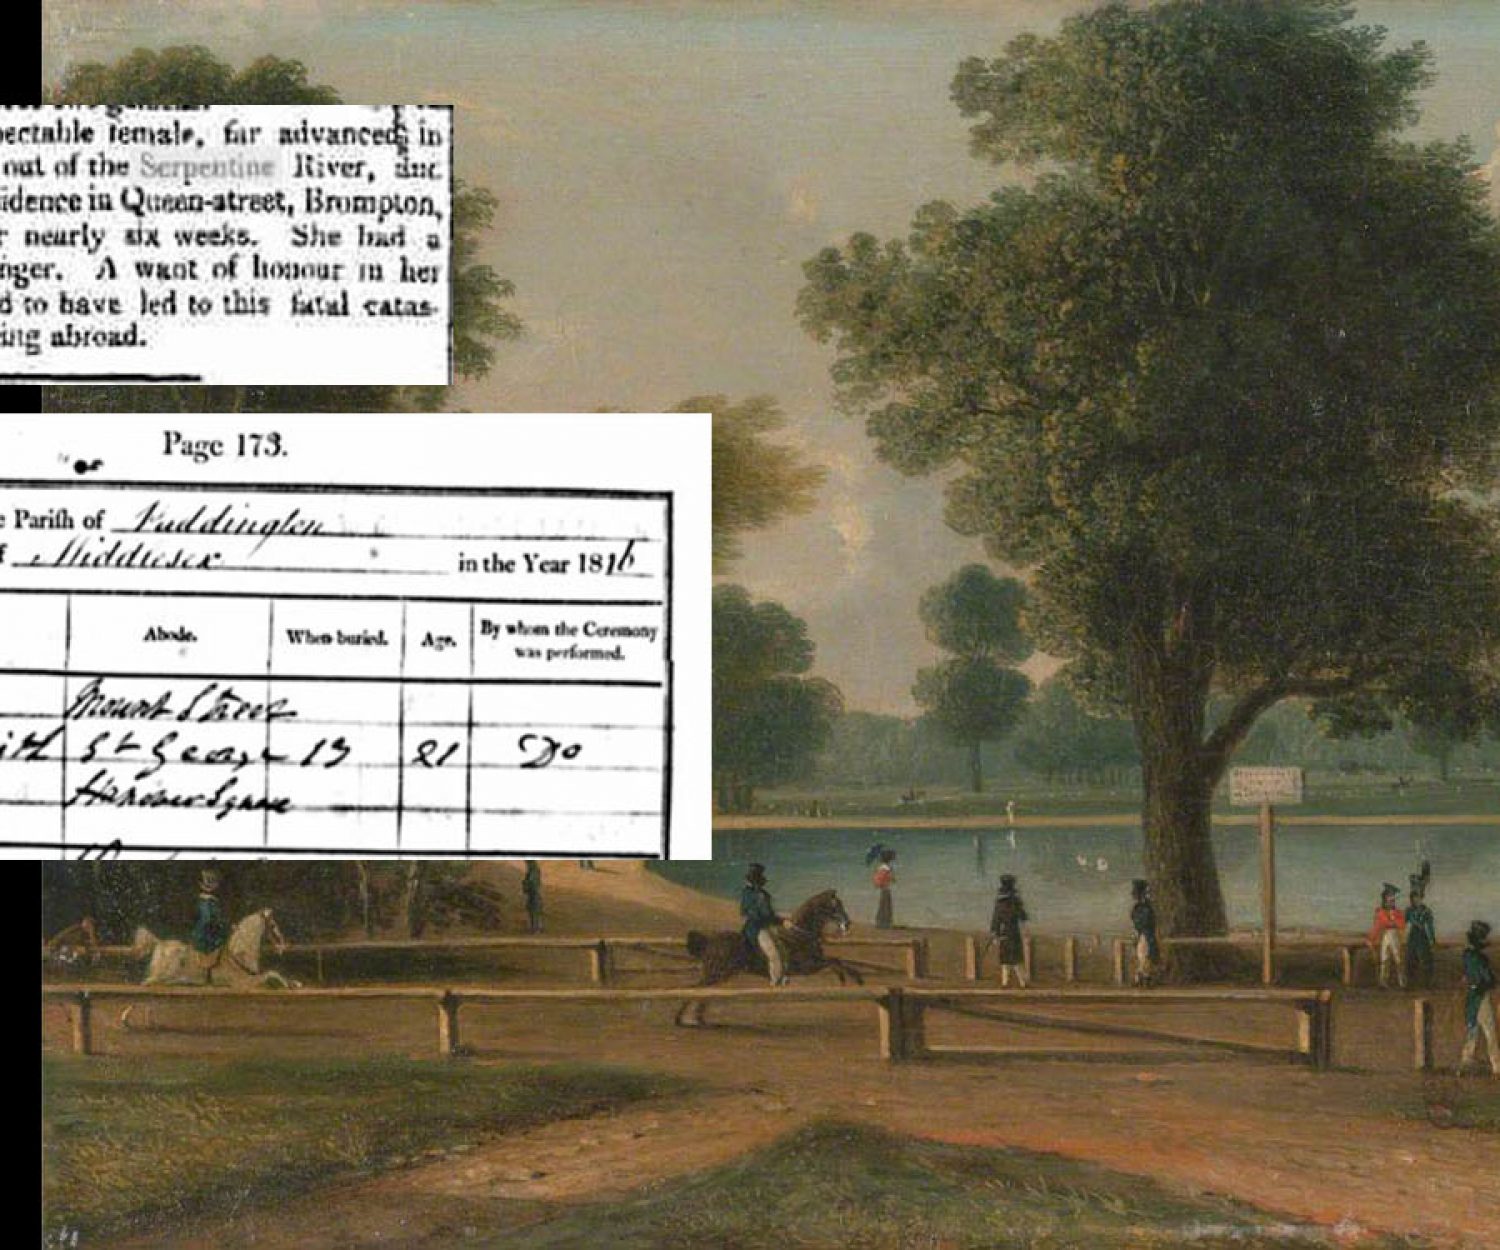 pectable female, far advanced in
out of the Serpentine River, and
idence in Queen-street, Brompton,
r nearly six weeks. She had a
nger. A want of honour in her
d to have led to this fatal catas-
ing abroad.
Page 173.
e Parish of Paddington
f Middlesex in the Year 1816
Abode. When buried. Age. By whom the Ceremony
was performed.
Mount Street
ith St George 13 21 Do
Hanover Square